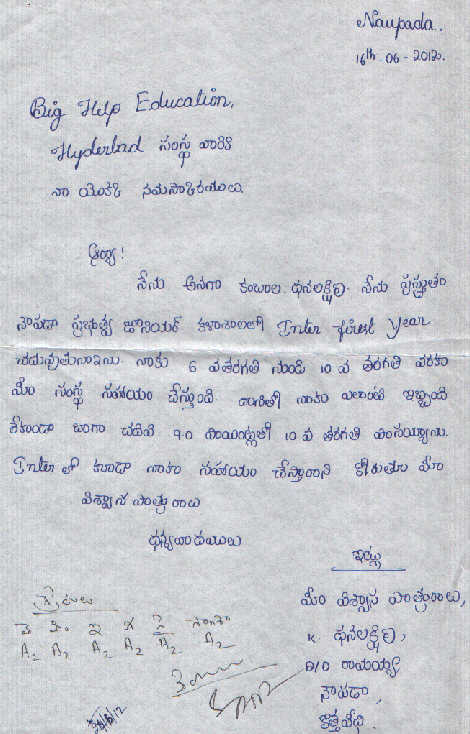 Naupada.
16th-06-2012.
Big Help Education,
Hyderbad సంస్థ వారికి
నా యొక్క నమస్కారములు
అయ్యా!
నేను అనగా కంబాల ధనలక్ష్మి. నేను ప్రస్తుతం
నౌపడా ప్రభుత్వ జూనియర్ కళాశాలలో Inter first Year
చదువుతున్నాను. నాకు 6 వ తరగతి నుండి 10 వ తరగతి వరకు
మీ సంస్థ సహాయం చేస్తుంది. దానితో నాకు ఎలాంటి ఇబ్బంది
లేకుండా బాగా చదివి 9.0 పాయింట్లతో 10 వ తరగతి పాసయ్యాను.
Inter లో కూడా నాకు సహాయం చేస్తారాని కోరుతూ మీ
విశ్వాస పాత్రురాలు
ధన్యవాదములు
ఇట్లు
మీ విశ్వాస పాత్రురాలు,
K. ధనలక్ష్మి,
D/O రామయ్య
నౌపడా,
కొత్తవీధి.
గ్రేడులు
తె హిం ఇ గ సై సాంఘి
A2 A2 A2 A2 A2 A2